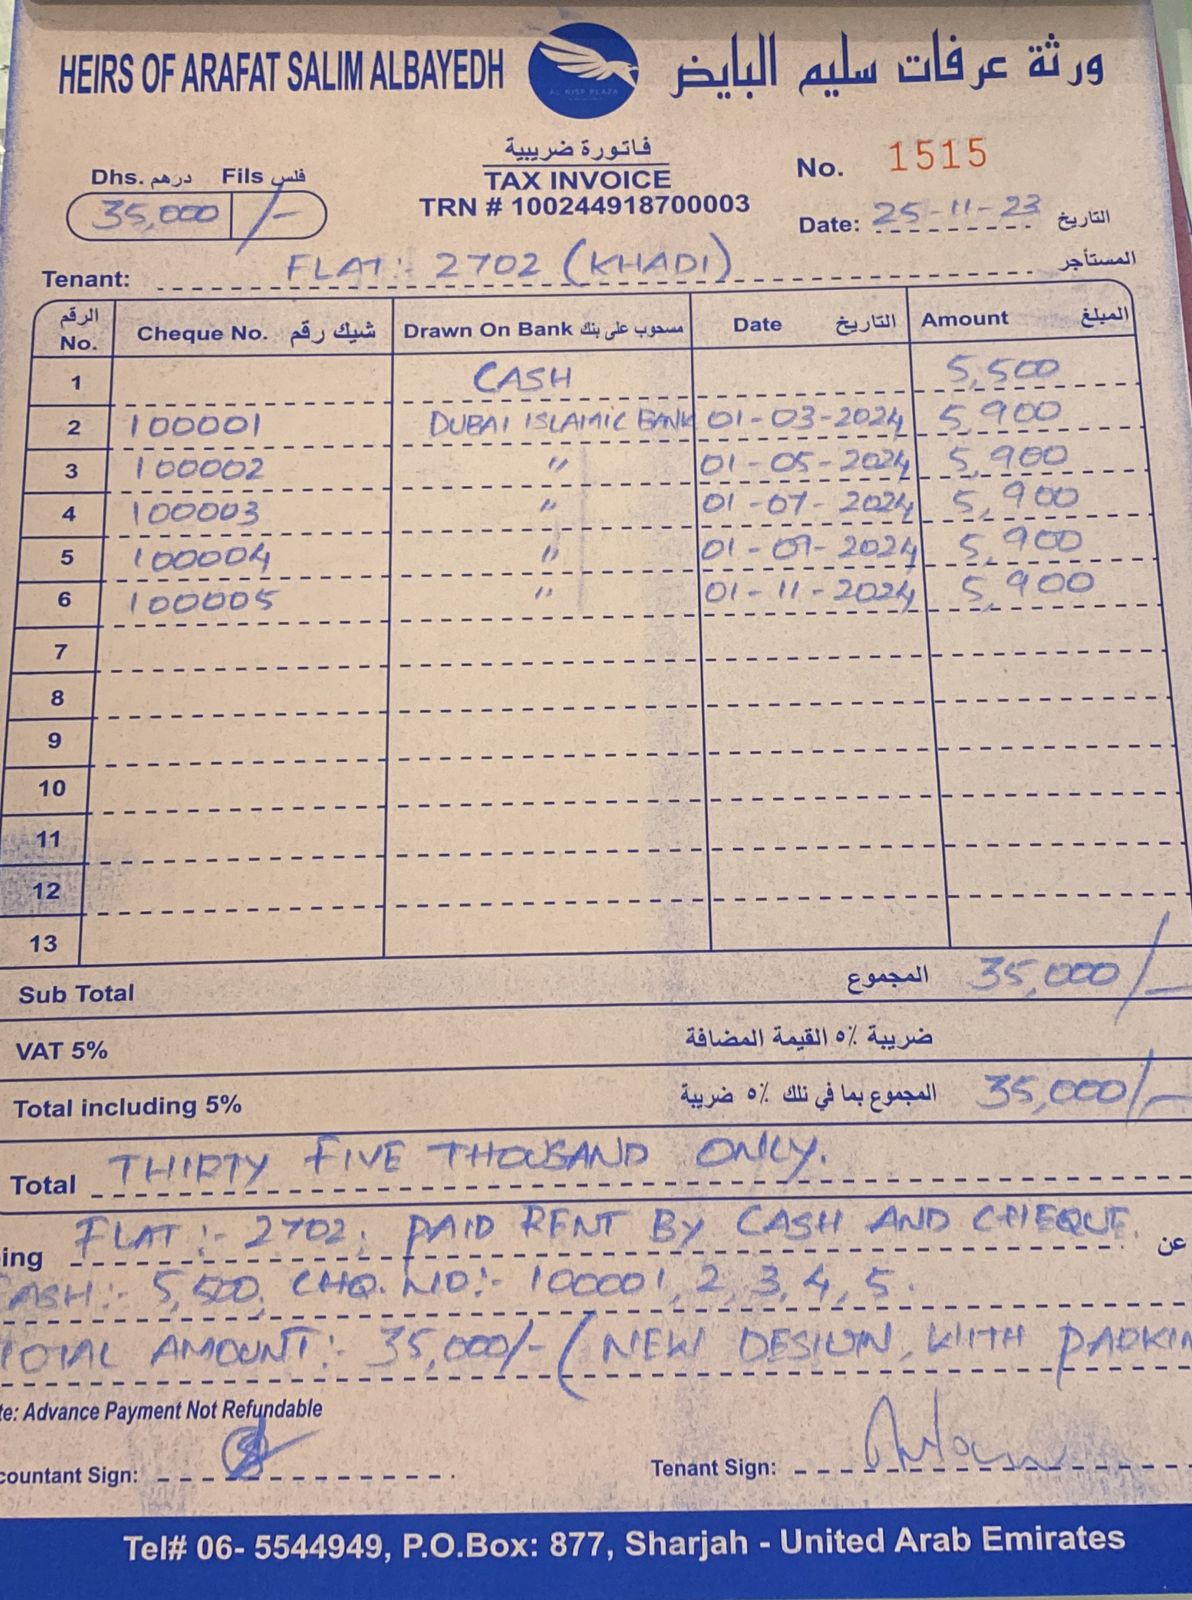 HEIRS OF ARAFAT SALIM ALBAYEDH
AL NISR PLAZA
ورثة عرفات سليم البايض
فاتورة ضريبية
TAX INVOICE
TRN # 100244918700003
No. 1515
Dhs. درهم Fils فلس
35,000 /-
Date: 25-11-23 التاريخ
Tenant: FLAT:- 2702 (KHADI) المستأجر
الرقم No. Cheque No. شيك رقم Drawn On Bank مسحوب على بنك Date التاريخ Amount المبلغ
1 CASH 5,500
2 100001 DUBAI ISLAMIC BANK 01-03-2024 5,900
3 100002 " 01-05-2024 5,900
4 100003 " 01-07-2024 5,900
5 100004 " 01-09-2024 5,900
6 100005 " 01-11-2024 5,900
7
8
9
10
11
12
13
Sub Total المجموع 35,000/-
VAT 5% ضريبة ٥٪ القيمة المضافة
Total including 5% المجموع بما في تلك ٥٪ ضريبة 35,000/-
Total THIRTY FIVE THOUSAND ONLY.
ing FLAT:- 2702. PAID RENT BY CASH AND CHEQUE. عن
ASH:- 5,500, CHQ. NO:- 100001, 2, 3, 4, 5.
TOTAL AMOUNT:- 35,000/- (NEW DESIGN, WITH PARKIN
te: Advance Payment Not Refundable
countant Sign: Tenant Sign:
Tel# 06- 5544949, P.O.Box: 877, Sharjah - United Arab Emirates